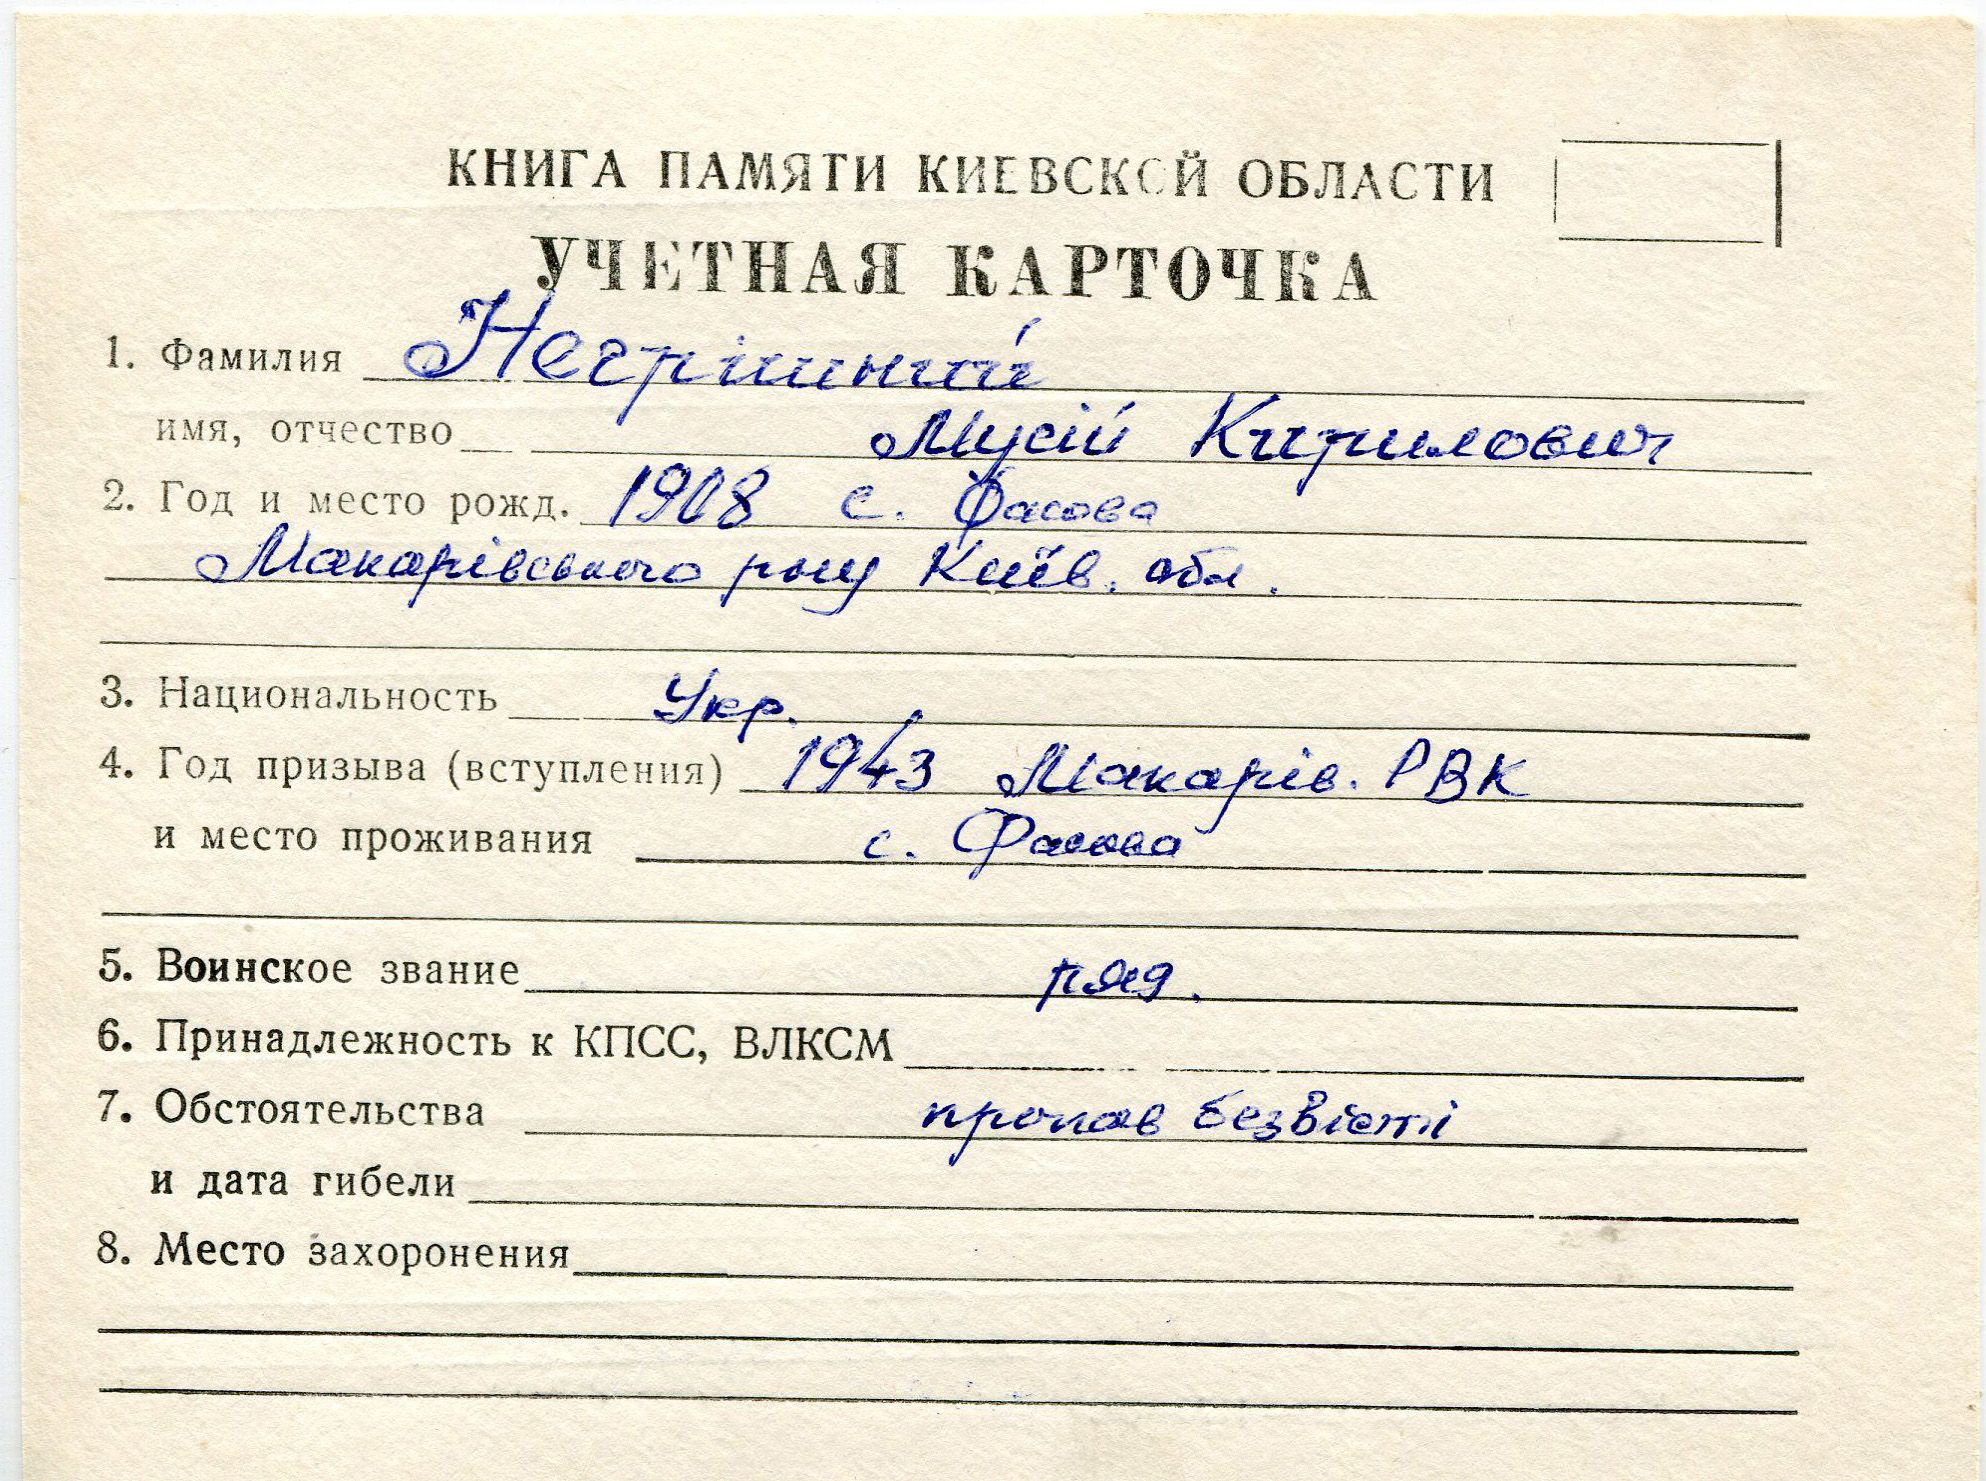 КНИГА ПАМЯТИ КИЕВСКОЙ ОБЛАСТИ
УЧЕТНАЯ КАРТОЧКА
1. Фамилия Негришний
имя, отчество Мусій Кирилович
2. Год и место рожд. 1908 с. Фасова
Макарівського р-ну Київ. обл.
3. Национальность Укр.
4. Год призыва (вступления) 1943 Макарів. РВК
и место проживания с. Фасова
5. Воинское звание ряд.
6. Принадлежность к КПСС, ВЛКСМ
7. Обстоятельства пропав безвісті
и дата гибели
8. Место захоронения